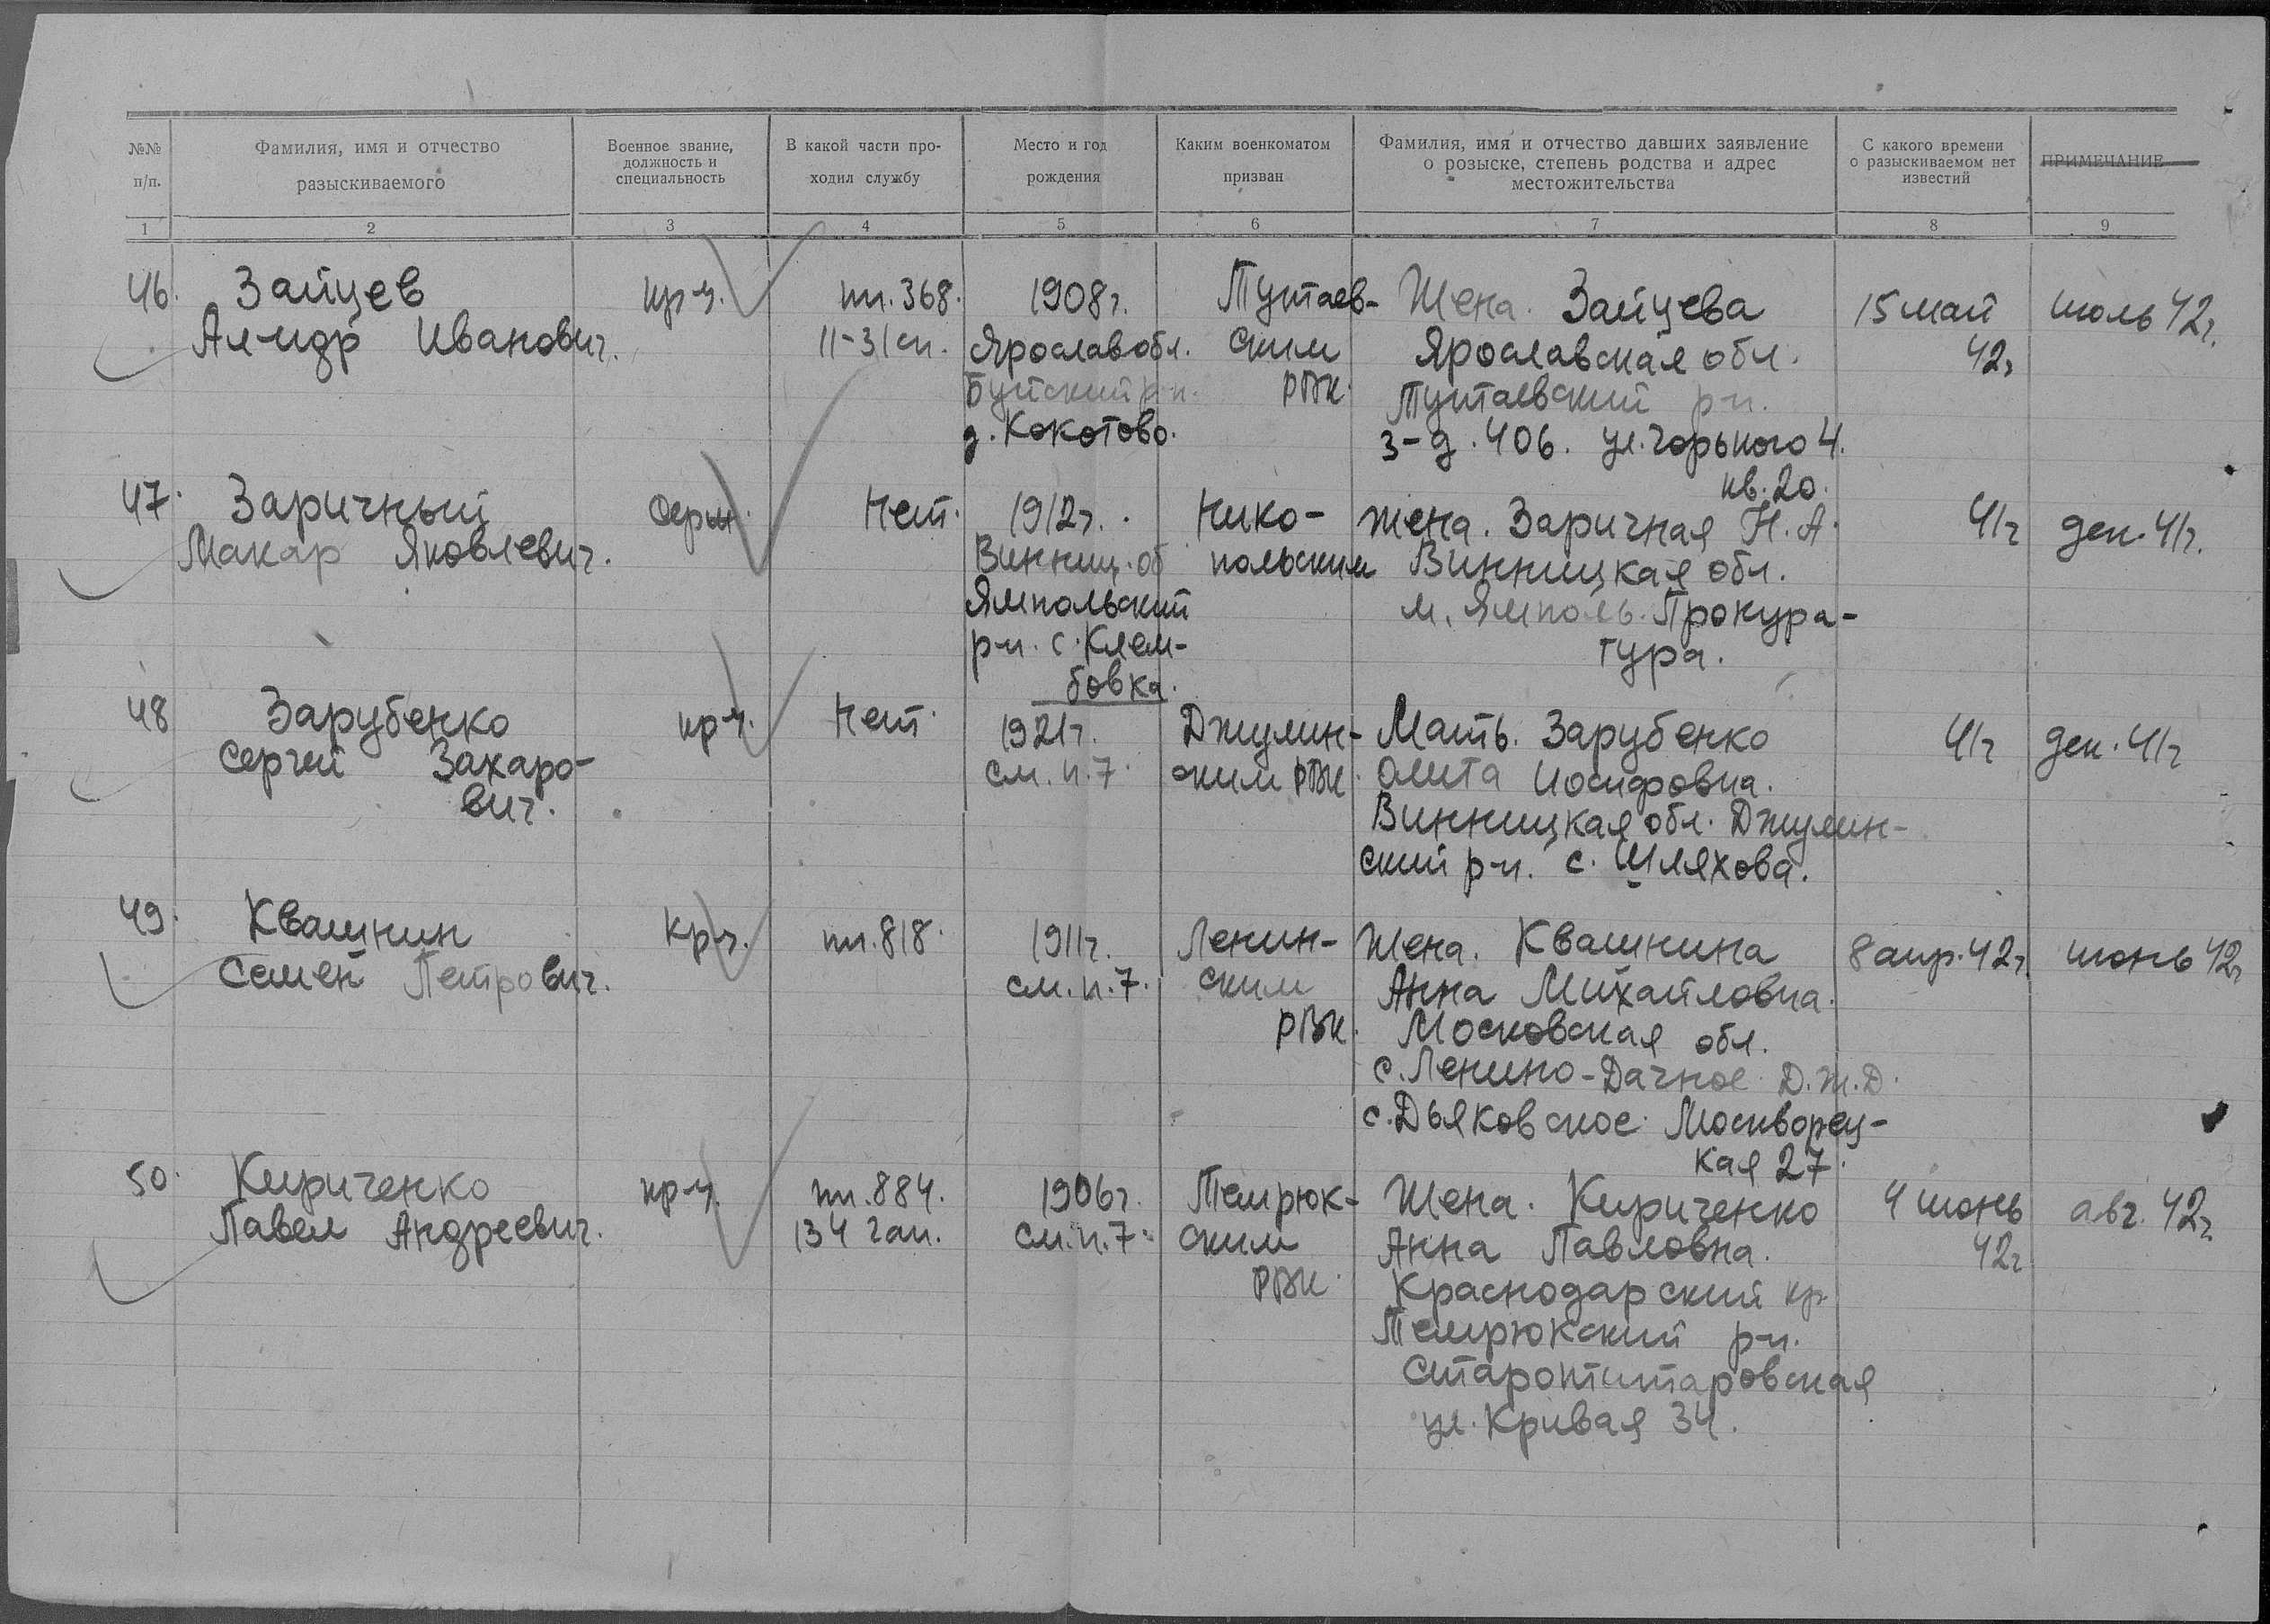 №№ п/п.
Фамилия, имя и отчество
разыскиваемого
Военное звание,
должность и
специальность
В какой части про-
ходил службу
Место и год
рождения
Каким военкоматом
призван
Фамилия, имя и отчество давших заявление
о розыске, степень родства и адрес
местожительства
С какого времени
о разыскиваемом нет
известий
ПРИМЕЧАНИЕ
1 2 3 4 5 6 7 8 9
46. Зайцев
Ал-ндр Иванович.
кр-ц.
пп. 368.
11-31 сп.
1908г.
Ярослав обл.
Буйский р-н.
д. Кокотово.
Тутаев-
ским
РВК.
Жена. Зайцева
Ярославская обл.
Тутаевский р-н.
з-д. 406. ул. Горького 4.
кв. 20.
15 май
42г
июль 42г.
47. Заричный
Макар Яковлевич.
серж.
нет.
1912г.
Винниц. об
Ямпольский
р-н. с. Клем-
бовка.
Нико-
польским
жена. Заричная Н. А.
Винницкая обл.
м. Ямполь. Прокура-
тура.
41г
дек. 41г.
48 Зарубенко
Сергей Захаро-
вич.
кр-ц.
нет.
1921г.
см. п. 7.
Джулин-
ским РВК.
Мать. Зарубенко
Иосифовна.
Винницкая обл. Джулин-
ский р-н. с. Шляхова.
41г
дек. 41г
49. Квашнин
Семен Петрович.
кр-ц.
пп. 818.
1911г.
см. п. 7.
Ленин-
ским
РВК.
Жена. Квашнина
Анна Михайловна.
Московская обл.
с. Ленино-Дачное Д.ж.д.
с. Дьяковское Москворец-
кая 27.
8 апр. 42г.
июнь 42г
50. Кириченко
Павел Андреевич.
кр-ц.
пп. 884.
134 гап.
1906г.
см. п. 7.
Темрюк-
ским
РВК.
Жена. Кириченко
Анна Павловна.
Краснодарский кр
Темрюкский р-н.
Старотитаровская
ул. Кривая 34.
4 июнь
42г
авг. 42г.